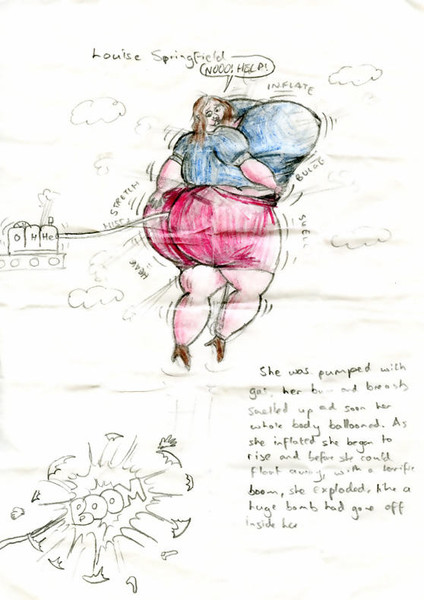 Louise Springfield
NOOO! HELP!
INFLATE
BULGE
STRETCH
HISS
SWELL
HEAVE
O H He
BOOM
She was pumped with
gas, her bum and breasts
swelled up and soon her
whole body ballooned. As
she inflated she began to
rise and before she could
float away, with a terrific
boom, she exploded, like a
huge bomb had gone off
inside her